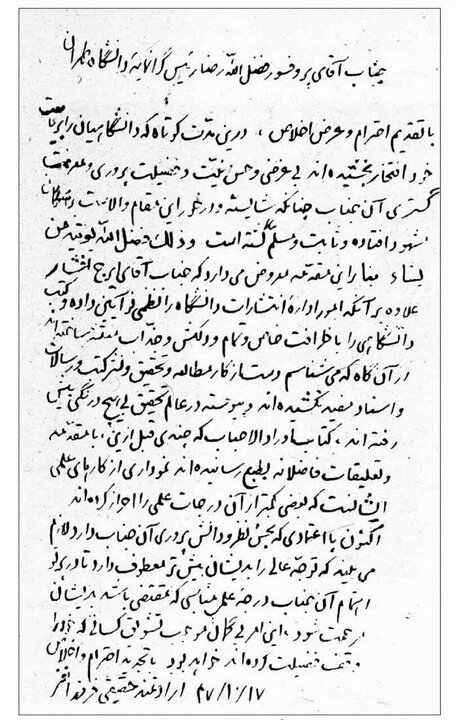 جناب آقای پروفسور فضل الله رضا رئیس گرانمایهٔ دانشگاه طهران
با تقدیم احترام و عرض اخلاص، درین مدت کوتاه که دانشگاهیان را بریاست
خود افتخار بخشیده‌اند بی غرضی و حسن نیت و فضیلت پروری و معرفت
گستری آن جناب چنانکه شایسته و درخور این مقام والاست دانشگاهیان
مشهود افتاده و ثابت و مسلم گشته است وذلک فضل الله یؤتیه من
یشاء بنابراین مقدمه معروض می‌دارد که جناب آقای ایرج افشار
علاوه بر آنکه امور ادارهٔ انتشارات دانشگاه را نظمی و آیینی داده و کتب
دانشگاهی را با ظرافت خاص و تمام و دلکش و جذاب
از آن گاه که می‌شناسم دست از کار مطالعه و تحقیق و نشر کتب و رسالات
و اسناد مفید نکشیده‌اند و پیوسته در عالم تحقیق بی هیچ درنگی پیش
رفته‌اند، کتاب اوراد الاحباب که چندی قبل ازین، با مقدمه
و تعلیقات فاضلانه بطبع رسانیده‌اند نموداری از کارهای علمی
ایشانست که بعضی کمتر از آن درجات علمی را احراز کرده‌اند
اکنون با اعتمادی که بحسن نظر و دانش پروری آن جناب دارد لازم
می‌بیند که توجه عالی را بدیشان بیش‌تر معطوف دارد تا در پرتو
اهتمام آن جناب درجهٔ علمی مناسبی که مقتضی باشد بدیشان
مرحمت شود، این امر بی گمان موجب تشویق کسانی که خود را
وقف فضیلت کرده‌اند خواهد بود با تجدید احترام و اخلاص
۴۷/۱۰/۱۷ ارادتمند حقیقی